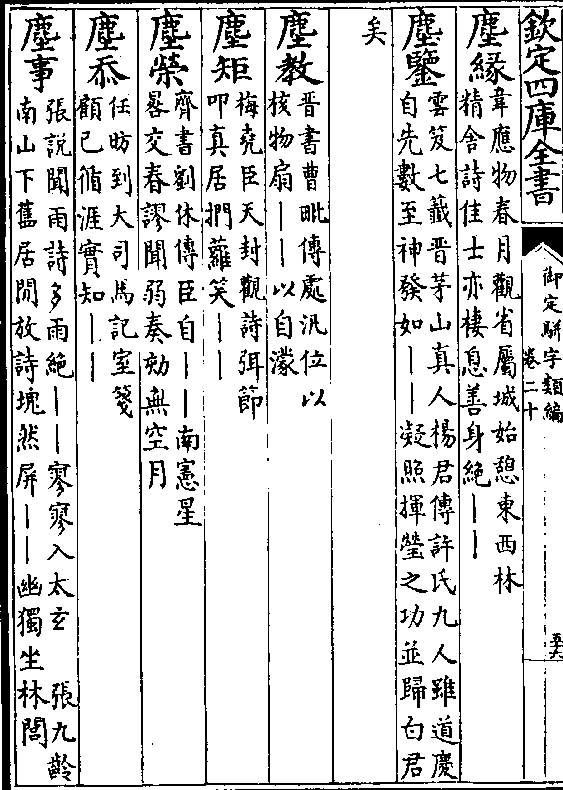 欽定四庫全書
御定駢字類編
卷二十
塵緣
韋應物春月觀省屬城始憩東西林
精舍詩佳士亦棲息善身絶丨丨
塵鑒
雲笈七籖晋茅山真人楊君傳許氏九人雖道慶
自先數至神發如丨丨凝照揮瑩之功並歸白君
矣
塵教
晋書曹毗傳處汎位以
核物扇丨丨以自濛
塵矩
梅堯臣天封觀詩弭節
叩真居捫蘿笑丨丨
塵榮
齊書劉休傳臣自丨丨南憲星
晷交春謬聞弱奏劾無空月
塵忝
任昉到大司馬記室箋
顧己循涯實知丨丨
塵事
張說聞雨詩多雨絶丨丨寥寥入太玄　張九齡
南山下舊居閒放詩塊然屏丨丨幽獨坐林閭